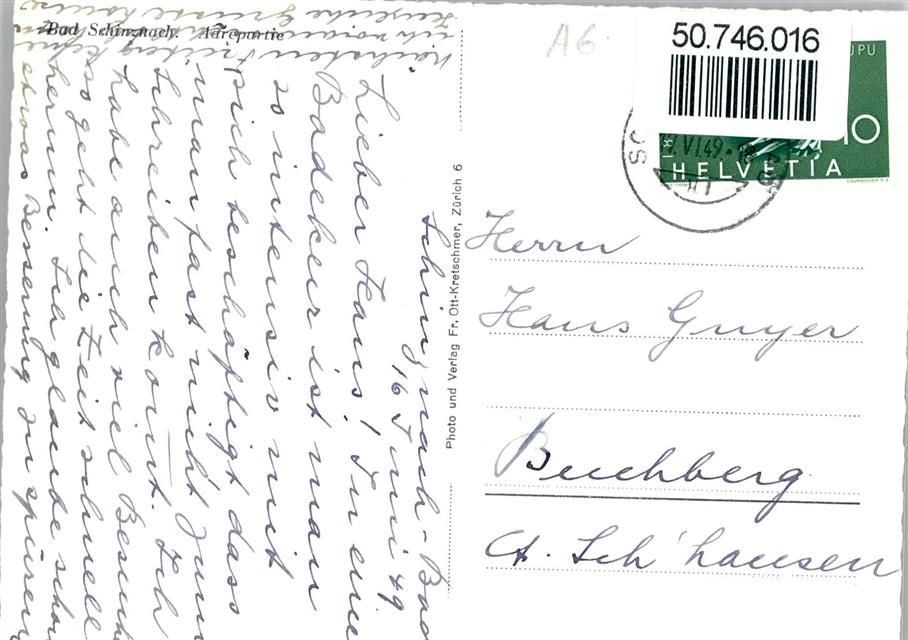 Bad Schinznach. Aarepartie
50.746.016
UPU
10
HELVETIA
VI.49
A6
Photo und Verlag Fr. Ott-Kretschmer, Zürich 6
Schinznach-Bad
16 Juni 49.
Lieber Hans! In einer
Badekur ist man
so intensiv mit
sich beschäftigt dass
man fast nicht zum
Schreiben komt. Ich
habe auch viel Besuch
so geht die Zeit schnell
herum. Ich glaube schon
etwas Besserung zu spüren
nächsten Freitag
ich
Grüsse
Herrn
Hans Guyer
Buchberg
Ct. Sch'hausen